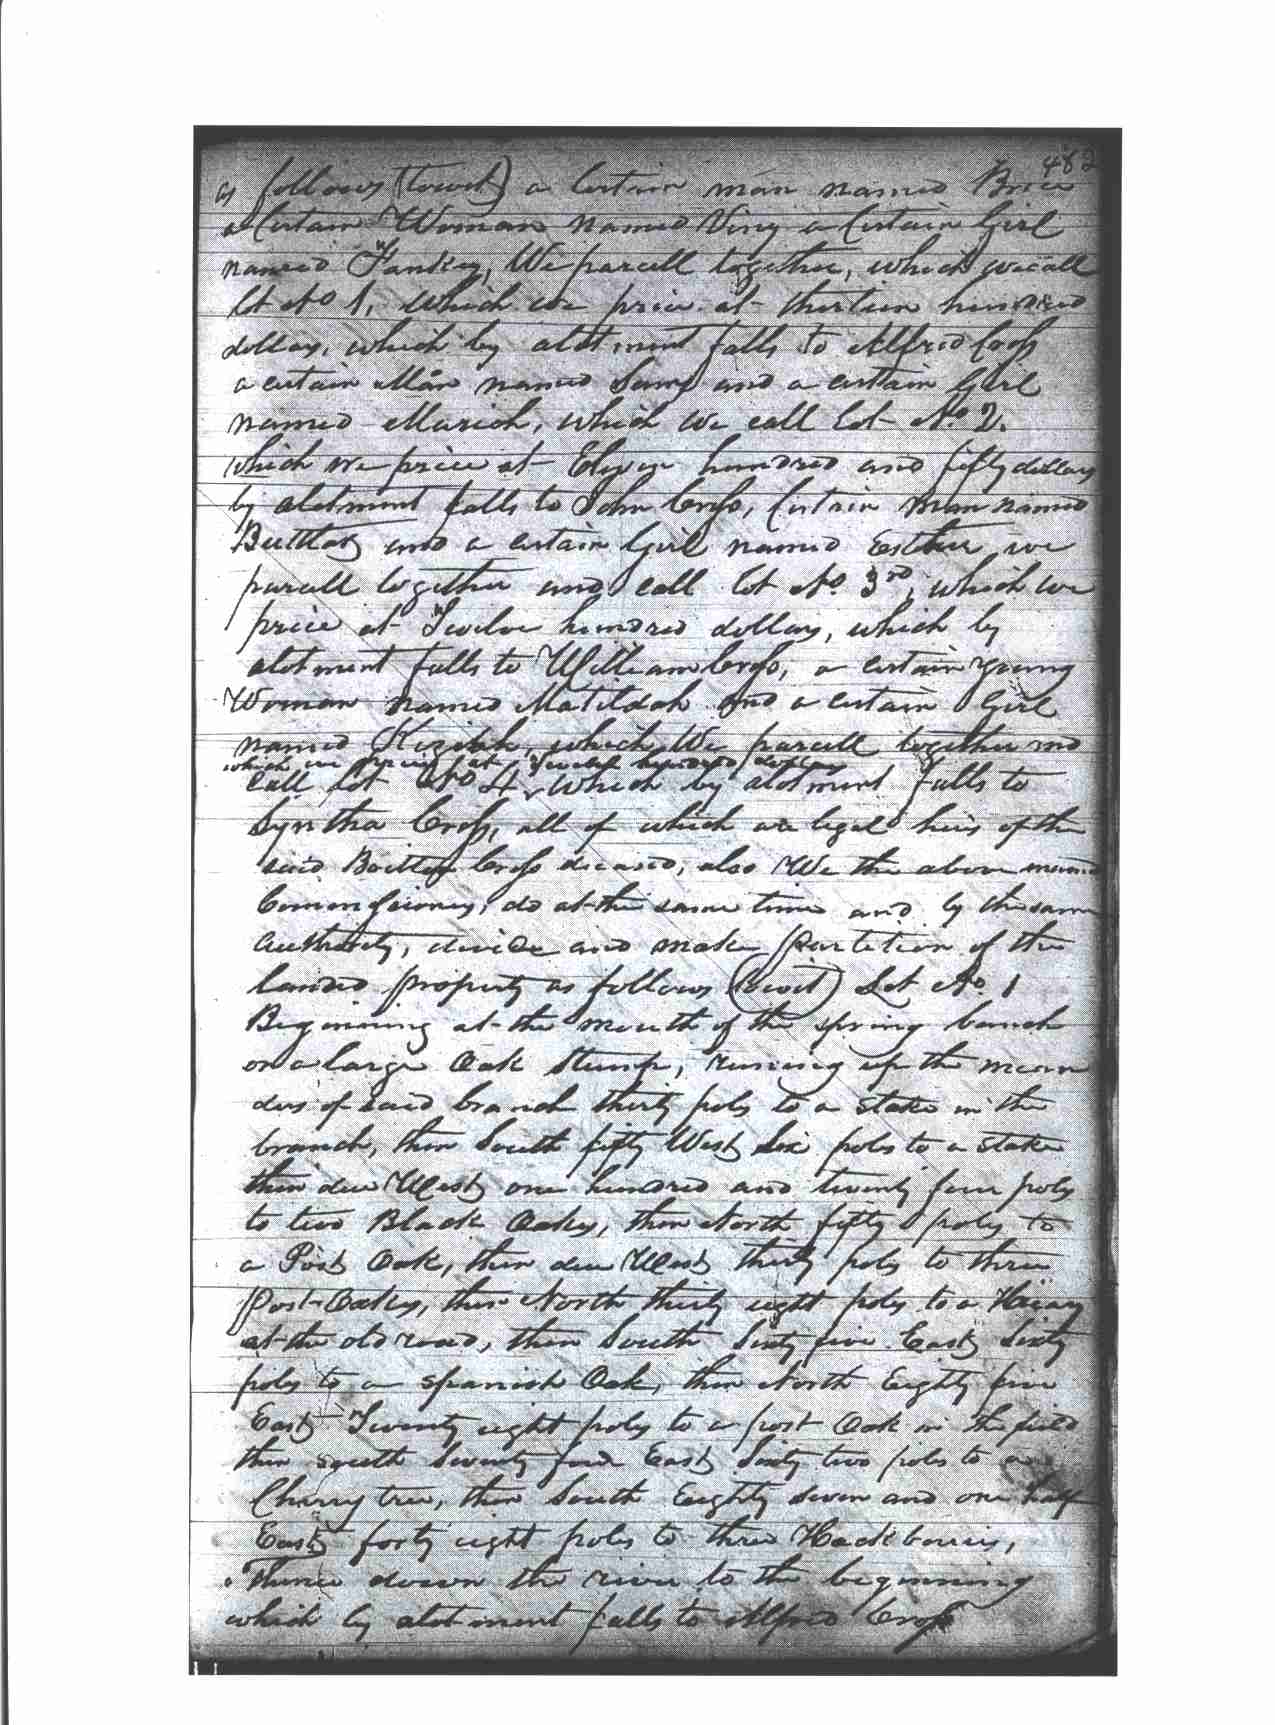 482
as follows (towit) a Certain man named Brice
a Certain Woman named Viny a Certain Girl
named Fankey, We parcell together, which we call
lot No 1, which we price at thirteen hundred
dollars, which by alotment falls to Alfred Cross
a certain Man named Sam and a certain Girl
named Mariah, which we call Lot No. 2.
which we price at Eleven hundred and fifty dollars
by alotment falls to John Cross, Certain man named
and a certain Girl named Esther we
parcell together and call lot No. 3rd, which we
price at Twelve hundred dollars, which by
alotment falls to William Cross, a certain young
Woman named Matildah and a certain Girl
named Kiziah, which We parcell together and
which we price at Twelve hundred dollars
call Lot No 4, which by alotment falls to
Syntha Cross, all of which are legal heirs of the
said Cross deceased, also We the above named
Commissioners, do at the same time and by the same
authority, divide and make partition of the
landed property as follows (towit) Lot No. 1
Beginning at the mouth of the spring branch
on a large Oak Stump, running up the mean
ders of said branch thirty poles to a stake in the
branch, then South fifty West six poles to a stake
then due West one hundred and twenty four poles
to two Black Oakes, then North fifty poles to
a Post Oak, then due West thirty poles to three
post-Oakes, then North thirty eight poles to a
at the old road, then South Sixty five East Sixty
poles to a spanish Oak, then North Eighty five
East Twenty eight poles to a post Oak in the field
then south Seventy four East Sixty two poles to a
Cherry tree, then South Eighty seven and one half
East forty eight poles to three Hackberries,
Thence down the river to the beginning
which by alotment falls to Alfred Cross